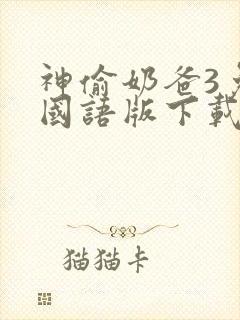 神偷奶爸3
國語版下載
猫猫卡